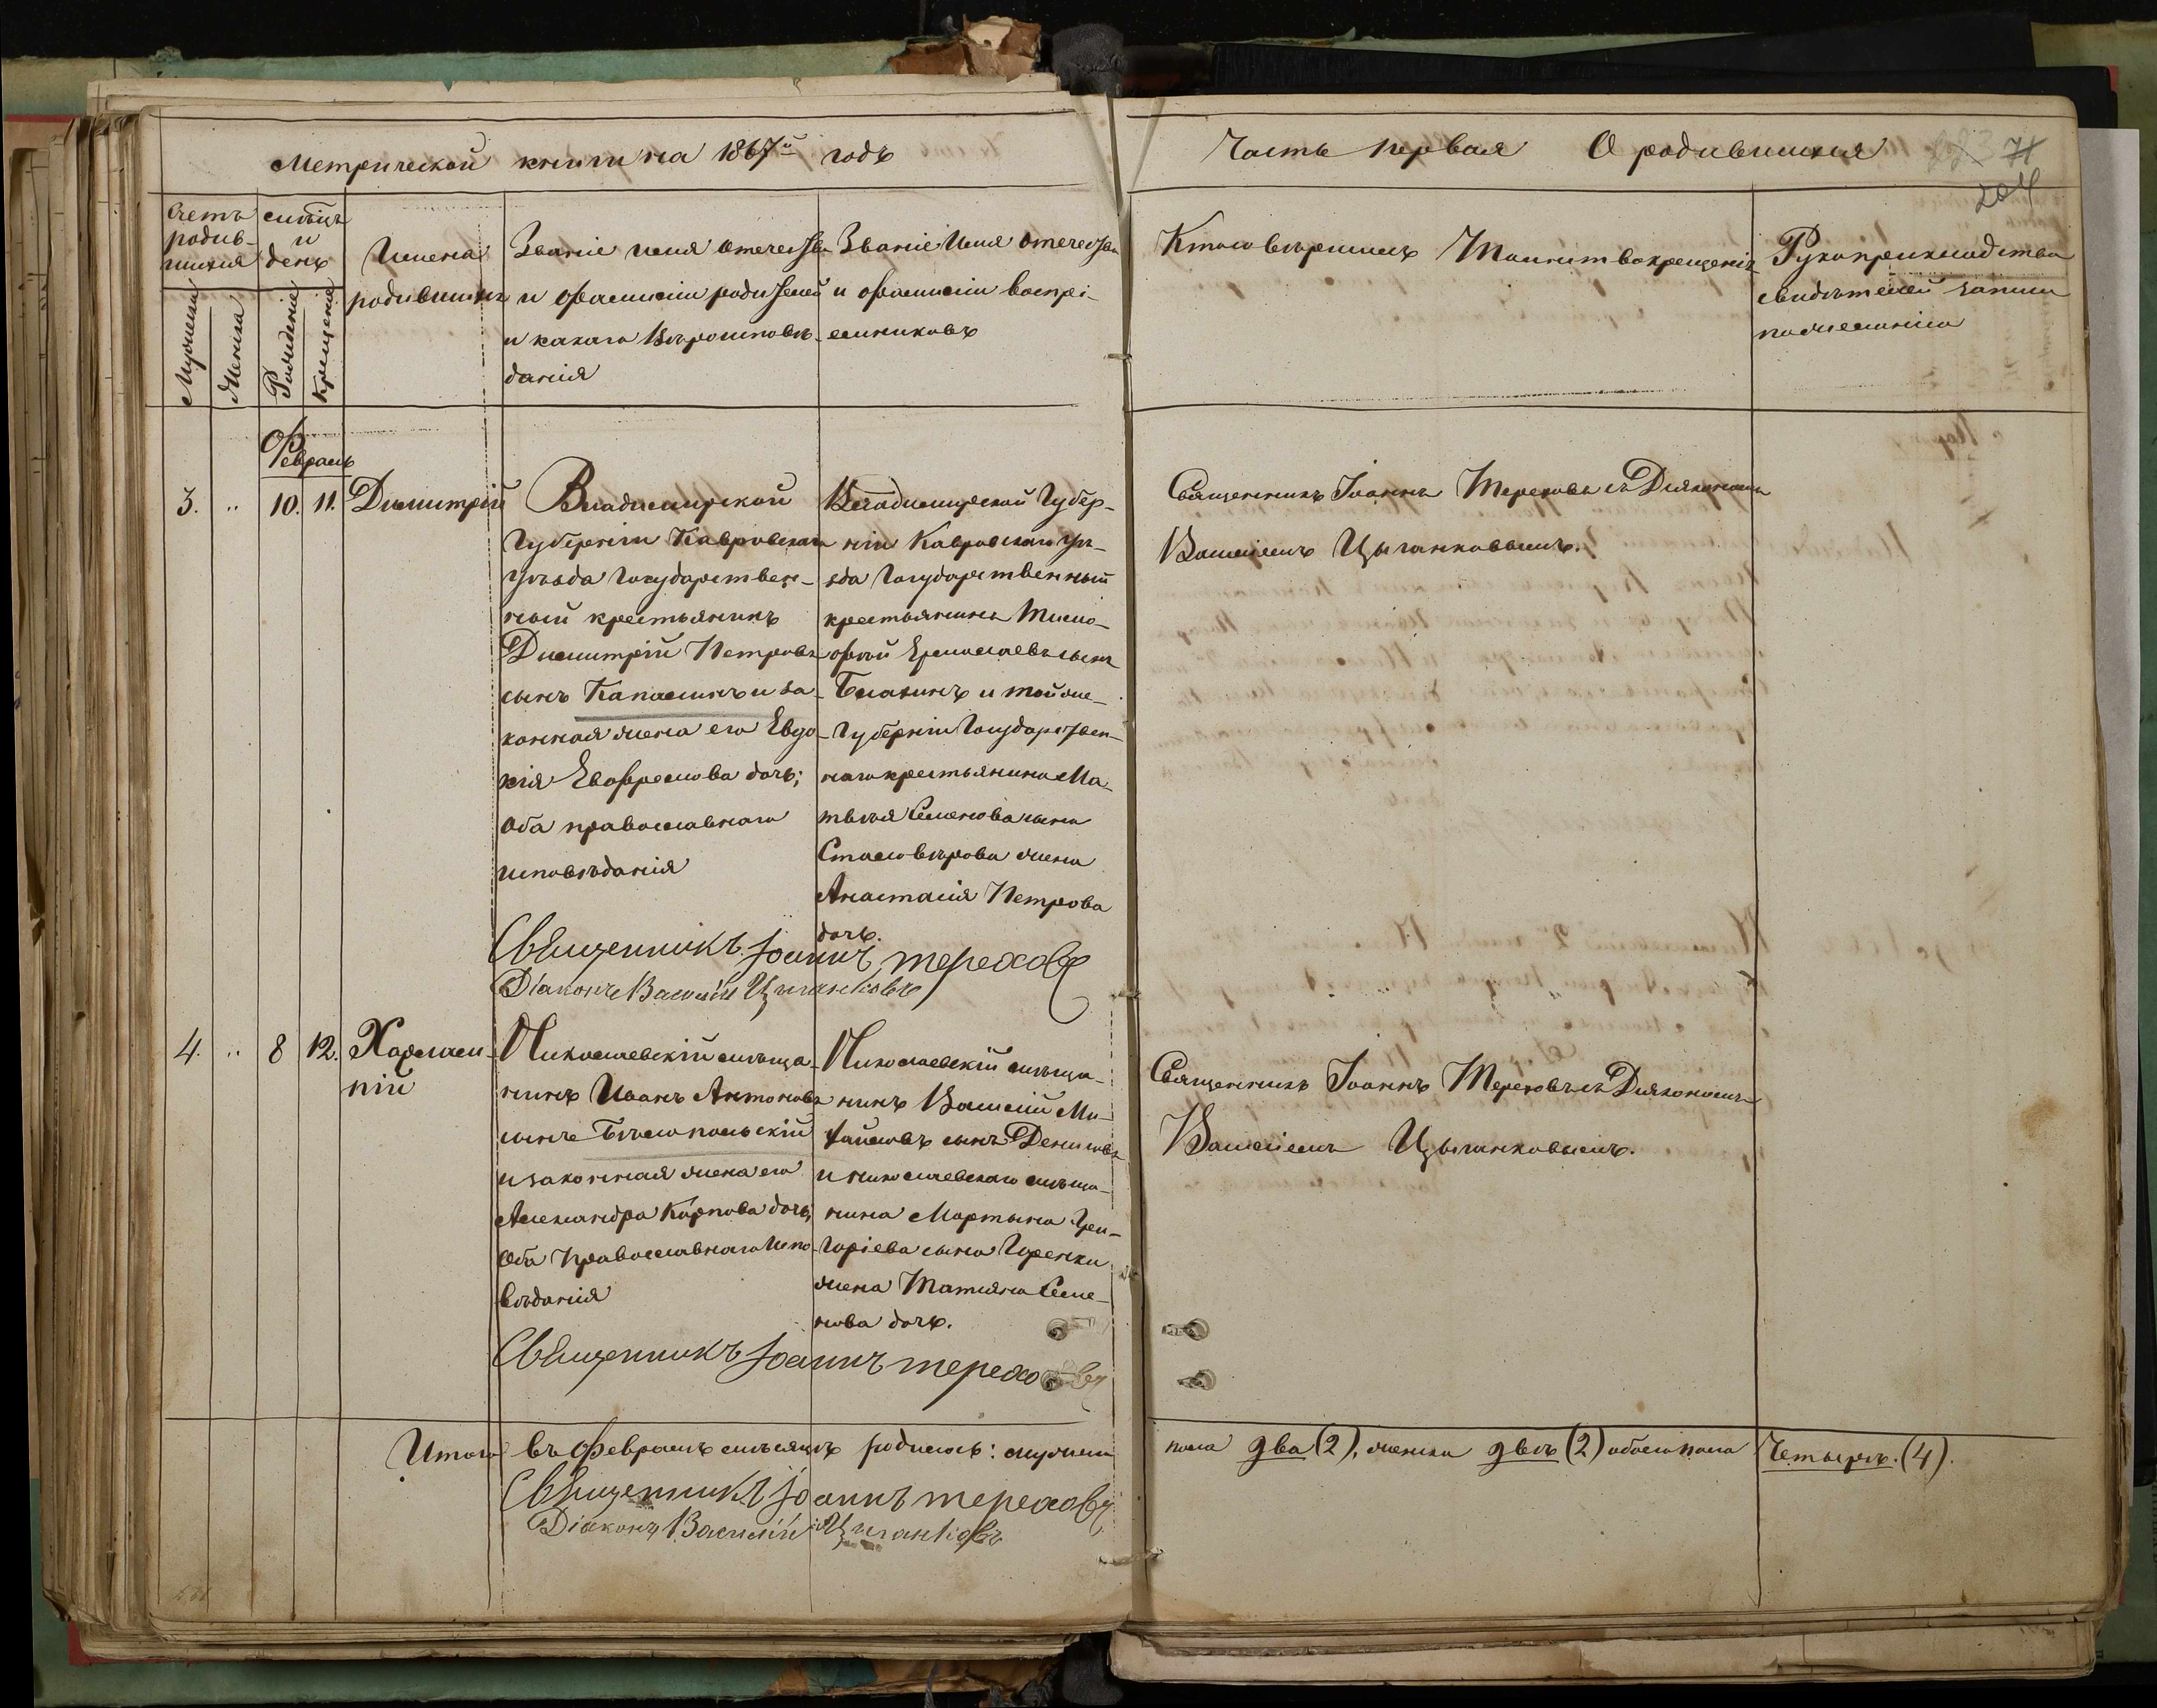 Метрической книги на 1867й годъ
Часть первая О родившихся
71
204
Счетъ родив-шихся
Мужеска
Женска
мѣсяцъ и день
Рожденіе
Крещеніе
Имена
родившихъ
Званіе имя отечество
и фамиліи родителей
и какаго вѣроисповѣ-
данія
Званіе имя отечество
и фамиліи воспрі-
емниковъ
Кто совершилъ Таинство крещенія
Рукоприкладства
свидѣтелей записи
по желанію
Февраль
3. „ 10. 11. Димитрій
Владимирской
Губерніи Кавровскаго
уѣзда Государствен-
ный крестьянинъ
Димитрій Петровъ
сынъ Капалинъ и за-
конная жена его Евдо-
кія Евфремова дочь;
оба православнаго
исповѣданія
Владимирской Губер-
ніи Кавровскаго уѣ-
зда Государственный
крестьянинъ Тимо-
фѣй Ермолаевъ сынъ
Блазинъ и той же
Губерніи Государствен-
наго крестьянина Ма-
твѣя Семенова сына
Сталовѣрова жена
Анастасія Петрова
дочь.
Священникъ Іоаннъ Тереховъ съ Діякономъ
Василіемъ Цыганковымъ.
Священникъ Іоаннъ Тереховъ
Діаконъ Василій Цыганковъ
4. „ 8 12. Харлам-
пій
Николаевскій мѣща-
нинъ Иванъ Антоновъ
сынъ Бѣлопольскій
и законная жена его
Александра Карпова дочь;
оба Православнаго испо-
вѣданія
Николаевскій мѣща-
нинъ Василій Ми-
хайловъ сынъ Денисовъ
и николаевскаго мѣща-
нина Мартына Гри-
горіева сына Гуренки
жена Татіяна Семе-
нова дочь.
Священникъ Іоаннъ Тереховъ съ Діякономъ
Василіемъ Цыганковымъ.
Священникъ Іоаннъ Тереховъ
Итого въ Февралѣ мѣсяцѣ родилось: мужеска
пола два (2), женска двѣ (2) обоего пола Четыре. (4).
Священникъ Іоаннъ Тереховъ
Діаконъ Василій Цыганковъ